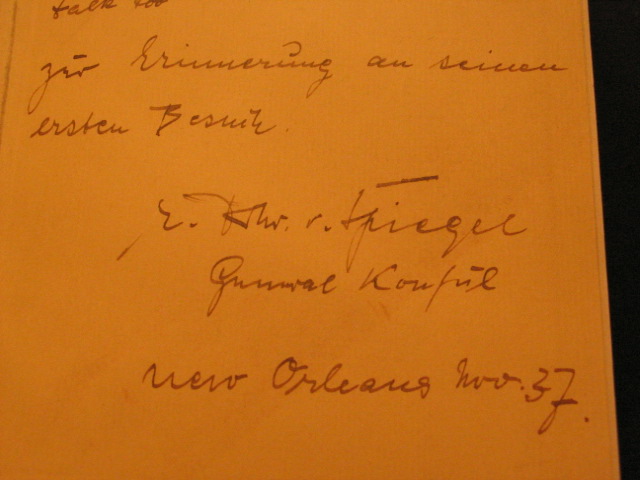 talk too
zur Erinnerung an seinen
ersten Besuch.
E. Frhr. v. Spiegel
General Konsul
New Orleans Nov. 37.